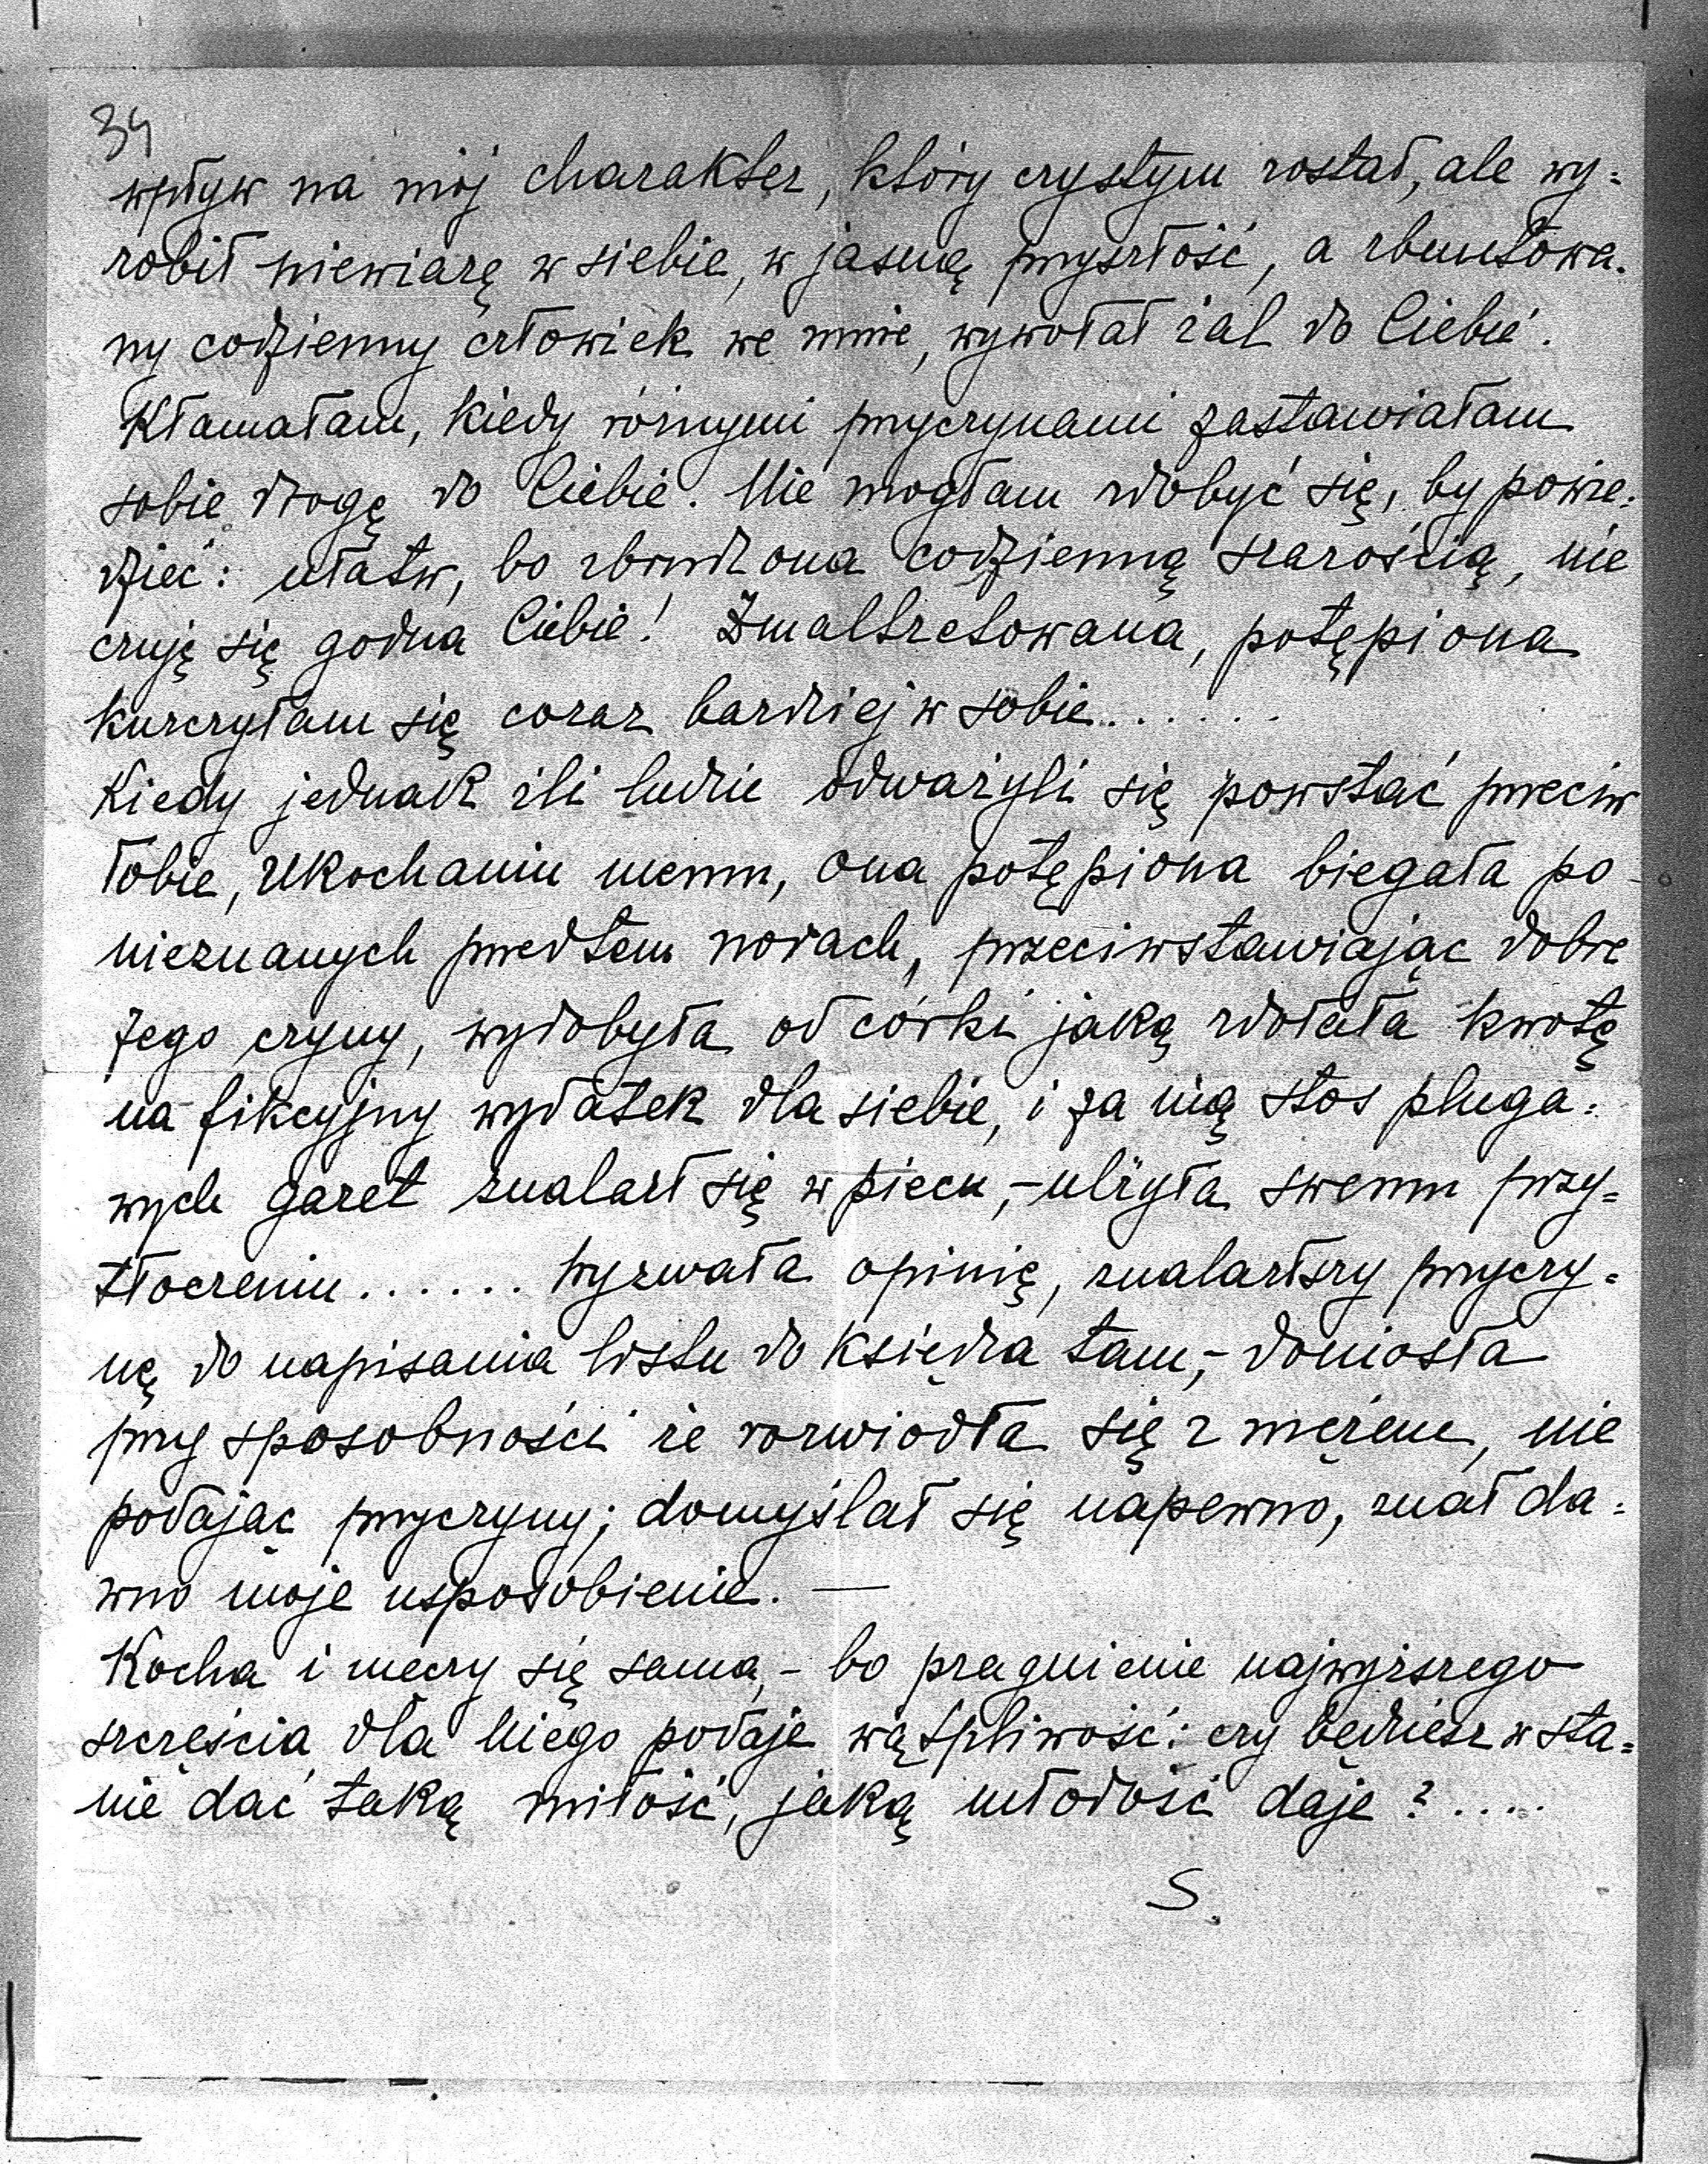 34
wpływ na mój charakter, który czystym został, ale wy=
robił niewiarę w siebie, w jasną przyszłość, a zbuntowa=
ny codzienny człowiek we mnie, wywołał żal do Ciebie.
Kłamałam, kiedy różnymi przyczynami zastawiałam
sobie drogę do Ciebie. Nie mogłam zdobyć się, by powie=
dzieć: ułatw, bo zbrudzona codzienną szarością, nie
czuję się godna Ciebie! Zmaltretowana, potępiona
kurczyłam się coraz bardziej w sobie......
Kiedy jednak źli ludzie odważyli się powstać przeciw
Tobie, Ukochaniu memu, ona potępiona biegała po
nieznanych przedtem norach, przeciwstawiając dobre
Jego czyny, wydobyła od córki jaką zdołała kwotę
na fikcyjny wydatek dla siebie, i za nią stos pluga=
wych gazet znalazł się w piecu,- ulżyła swemu przy=
tłoczeniu...... Wyzwała opinię, znalazłszy przyczy=
nę do napisania listu do księdza tam,- doniosła
przy sposobności że rozwiodła się z mężem, nie
podając przyczyny; domyślał się napewno, znał da=
wno moje usposobienie. —
Kocha i męczy się sama,- bo pragnienie najwyższego
szczęścia dla Niego podaje wątpliwość: czy będziesz w sta=
nie dać taką miłość, jaką młodość daje?.....
S.